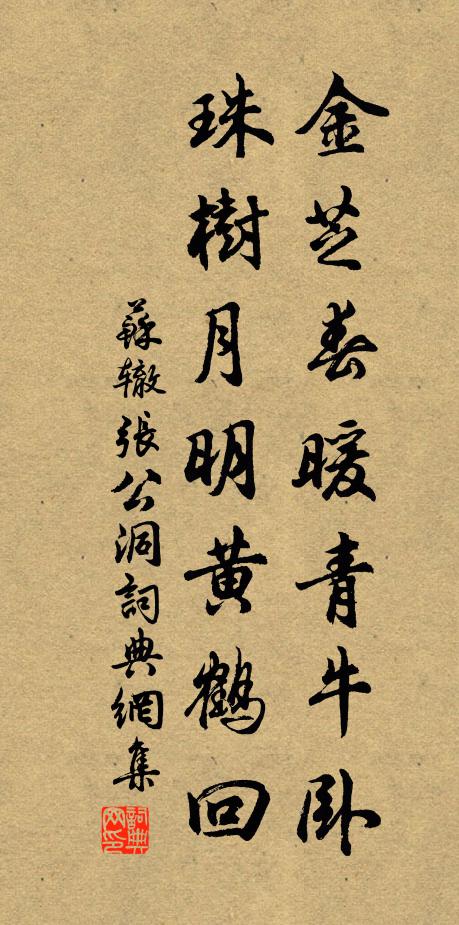 金芝春暖青牛卧
珠樹月明黃鶴回
蘇辙張公洞詞典網集
詞典網印